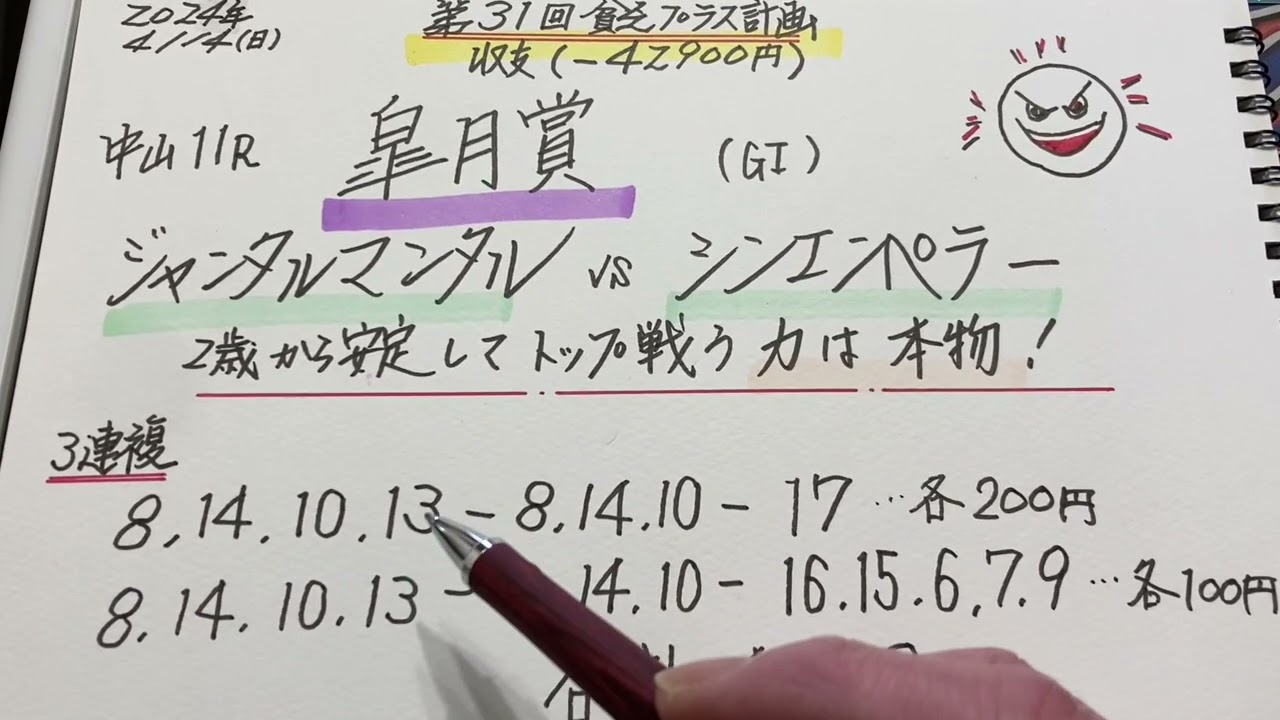 2024年
4/14(日)
第31回 貧乏プラス計画
収支(-42900円)
中山11R 皐月賞 (GI)
ジャンタルマンタル vs シンエンペラー
2歳から安定してトップ戦う力は本物!
3連複
8,14.10.13-8.14.10-17…各200円
8.14.10.13- 14.10-16.15.6.7.9…各100円